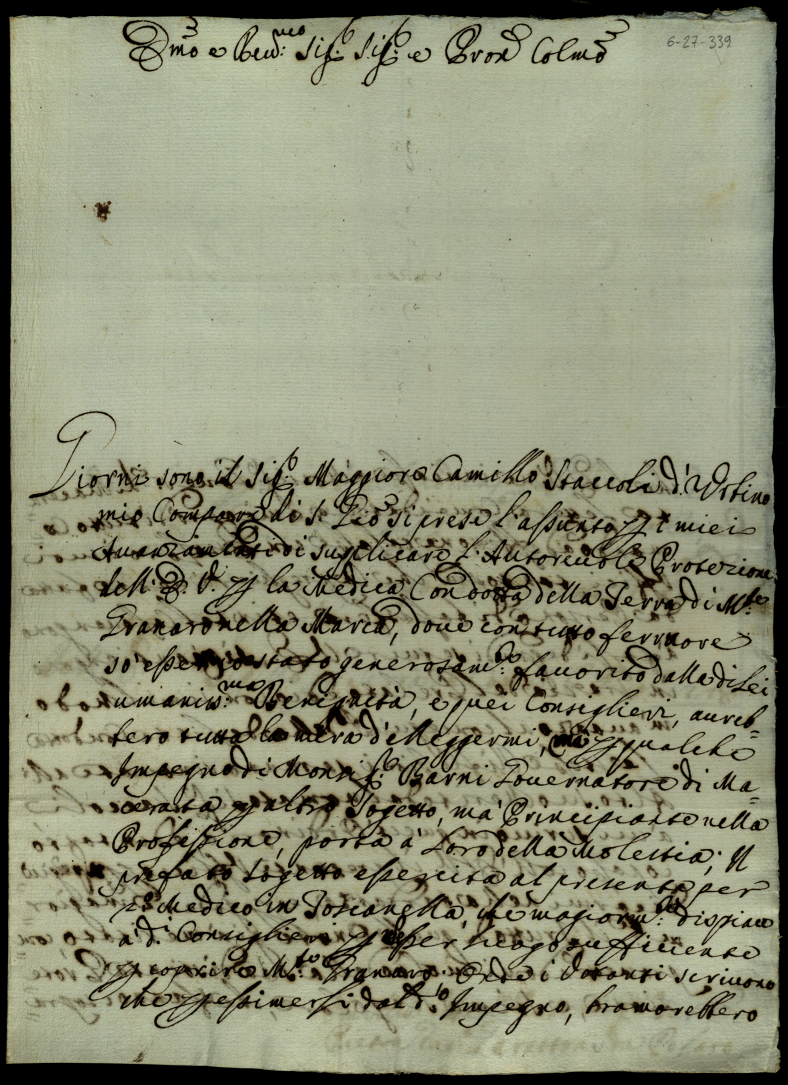 Emo e Reu.mo Sig.r Sig.r e Pron Colmo
6-27-339
Giorni sono il Sig.r Maggiore Camillo Staccoli d'Vrbino
mio Compare di S. Gio: si prese l'assunto p i miei
Auanzamenti di suplicare l'Autoreuole Protezione
dell' E. V. p la Medica Condotta della Terra di M.te
Granaro nella Marca, doue con tutto feruore
so essere stato generosam.te fauorito dalla di Lei
umaniss.ma Benignità, e quei Consiglieri, aureb=
bero tutta la mira d'eleggermi, mà p qualche
Impegno di Monsig.r Barni Gouernatore di Ma=
cerata p altro Sogetto, mà Principiante nella
Professione, porta à Loro della Molestia; Il
prefato Sogetto essercita al presente per
2.do Medico in Toscanella, che magiorm.te dispiace
a' d.i Consiglieri p esser luogo sufficiente
p coprire M.te Granaro. Onde i Votanti scriuono
che p esimersi dal d.o Impegno, bramarebbero